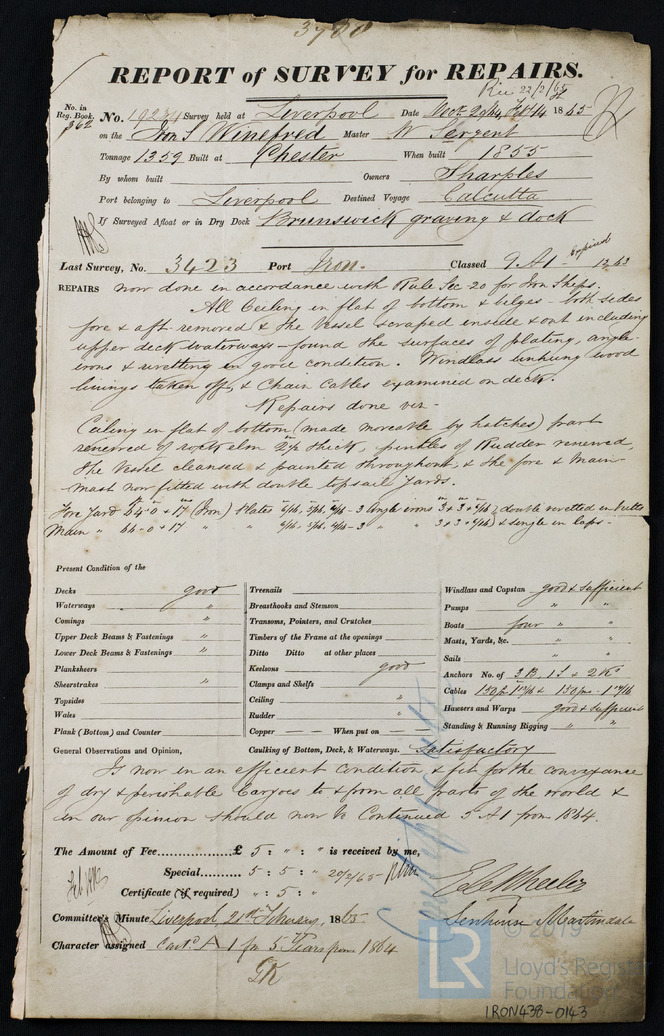 3700
REPORT of SURVEY for REPAIRS.
Rec 22/2/65
No. in Reg. Book. 362
No. 19234 Survey held at Liverpool Date Novr 29th, Feb 14 1865
on the Iron S Winefred Master W Sergent
Tonnage 1359 Built at Chester When built 1855
By whom built Owners Sharples
Port belonging to Liverpool Destined Voyage Calcutta
If Surveyed Afloat or in Dry Dock Brunswick graving & dock
Last Survey, No. 3423 Port Iron. Classed 9. A1 - Expired 12.63
REPAIRS now done in accordance with Rule Sec 20 for Iron Ships.
All Ceiling in flat of bottom & bilges - both sides
fore & aft removed & the Vessel scraped inside & out including
upper deck waterways - found the surfaces of plating, angle
irons & rivetting in good condition. Windlass unhung wood
linings taken off, & Chain Cables examined on deck.
Repairs done viz -
Ceiling in flat of bottom (made moveable by hatches) part
renewed of rock elm 2½ in thick, pintles of Rudder renewed,
the Vessel cleansed & painted throughout, & the fore & Main
mast now fitted with double topsail Yards.
Fore Yard 64-0 + 17 (Iron) Plates 6/16, 5/16, 4/16 - 3 Angle irons 3 + 3 + 6/16 double rivetted in butts
Main " 64-0 + 17 " " 6/16. 5/16. 4/16 - 3 " " 3 + 3 + 6/16 & single in laps -
Present Condition of the
Decks good
Waterways "
Comings "
Upper Deck Beams & Fastenings "
Lower Deck Beams & Fastenings "
Planksheers
Sheerstrakes "
Topsides
Wales
Plank (Bottom) and Counter
Treenails
Breasthooks and Stemson
Transoms, Pointers, and Crutches
Timbers of the Frame at the openings
Ditto Ditto at other places
Keelsons good
Clamps and Shelfs
Ceiling "
Rudder "
Copper — — When put on — —
Windlass and Capstan good & sufficient
Pumps " "
Boats four " "
Masts, Yards, &c. " "
Sails " "
Anchors No. of 3 B. 1 S & 2 K
Cables
Hawsers and Warps good & sufficient
Standing & Running Rigging " "
General Observations and Opinion, Caulking of Bottom, Deck, & Waterways. Satisfactory
Is now in an efficient condition & fit for the conveyance
of dry & perishable Cargoes to & from all parts of the world &
in our opinion should now be Continued 5 A1 from 1864.
The Amount of Fee £ 5 : " : " is received by me,
Special 5 : 5 : " 20/2/65
Certificate (if required) " : 5 : "
E L Wheeler
Senhouse Martindale
Committee's Minute Liverpool 21st February, 1865
Character assigned Contd A 1 for 5 Years from 1864
© 2019
LR Lloyd's Register
Foundation
IRON438-0143